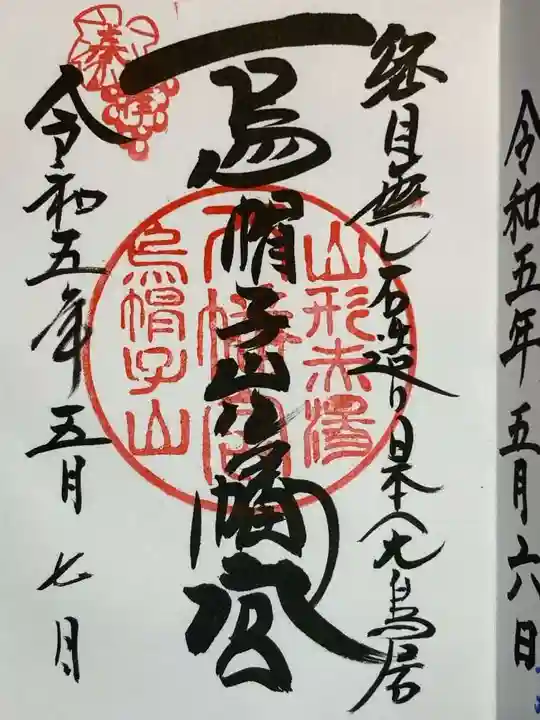 令和五年五月六日
継目無し石造り日本一大鳥居
烏帽子山八幡宮
山形赤湯
八幡宮
烏帽子山
奉拝
令和五年五月七日